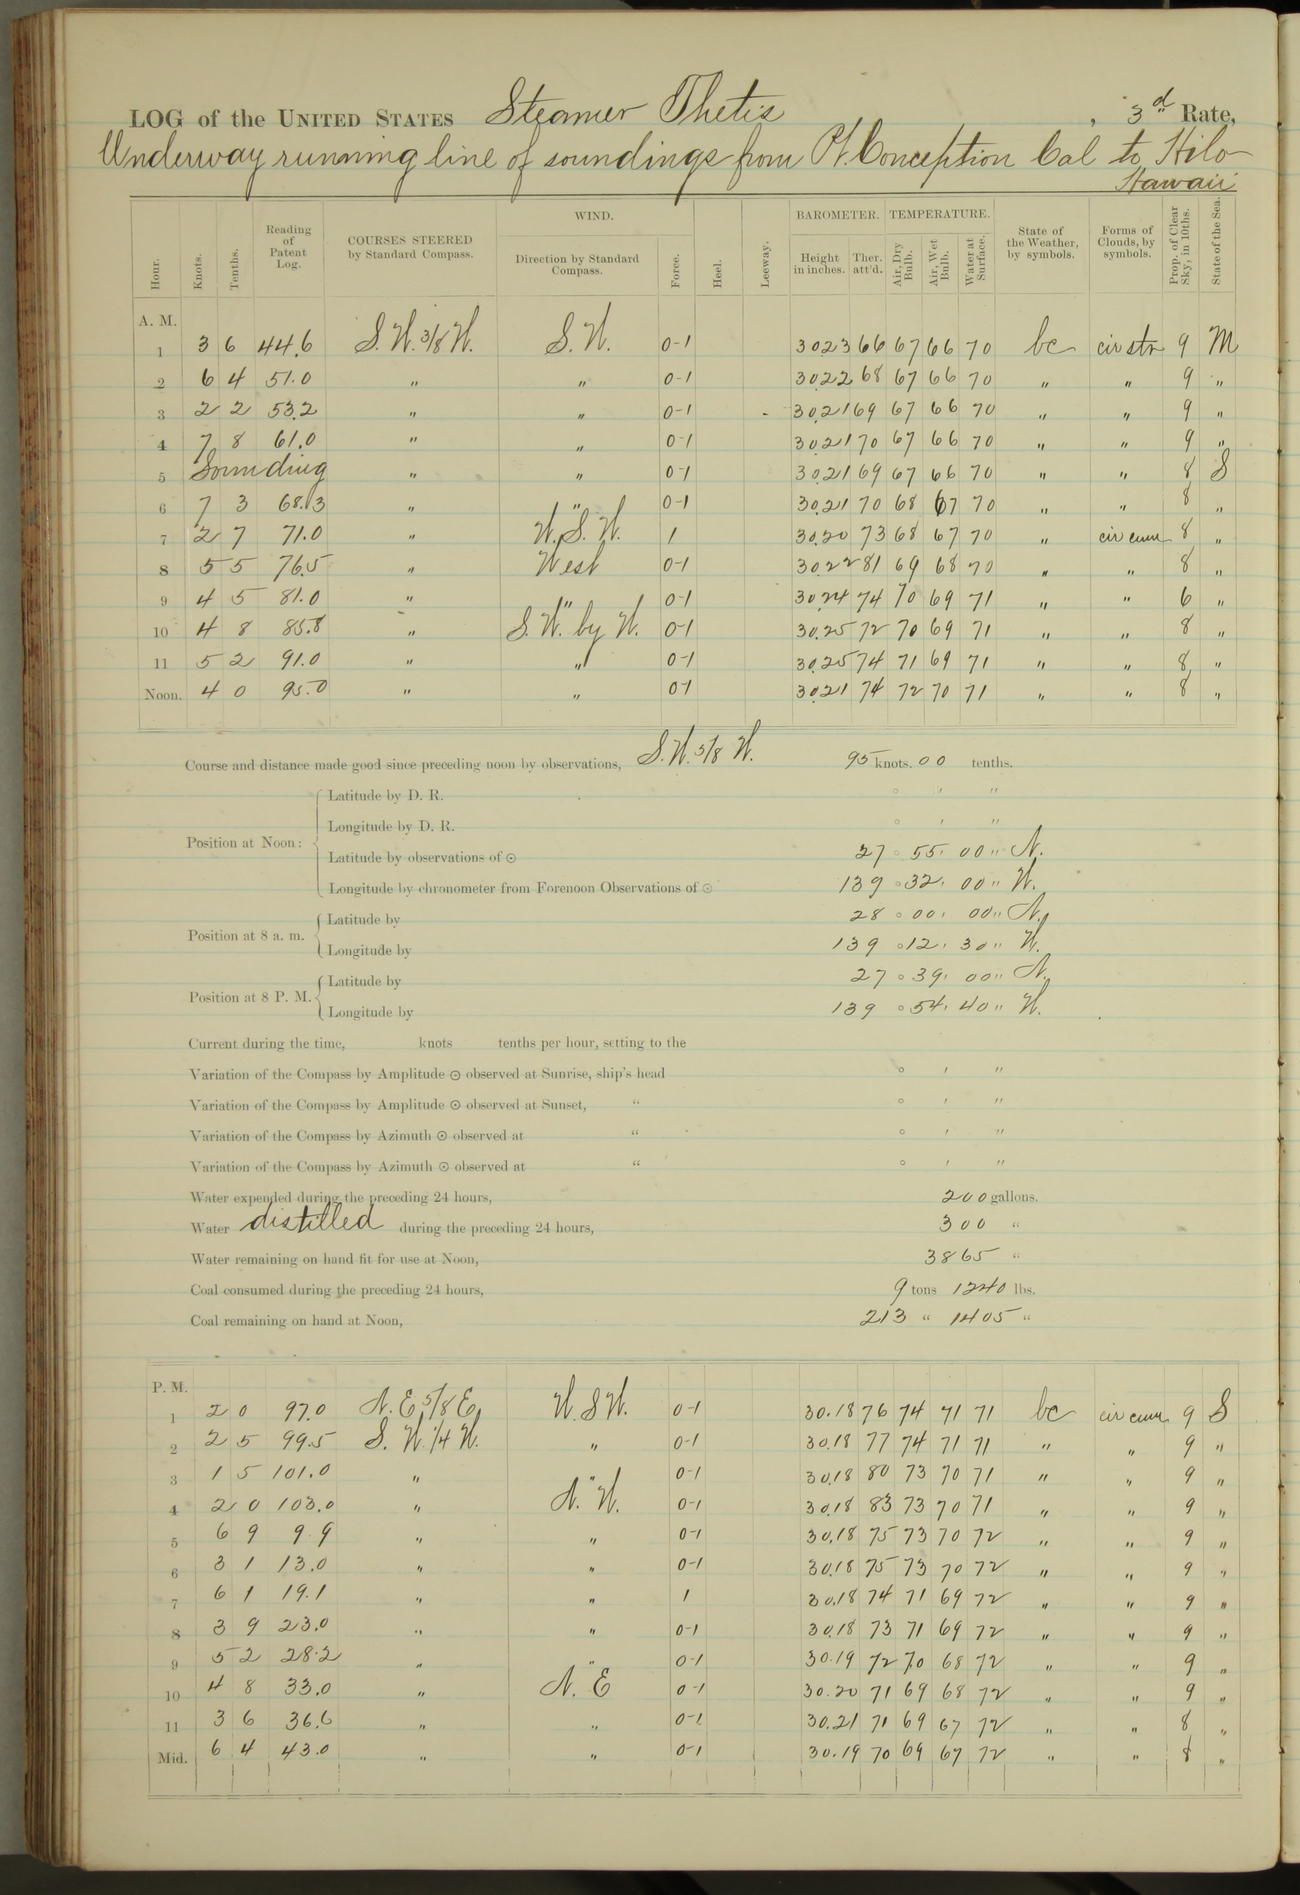 LOG of the UNITED STATES Steamer Thetis , 3d Rate,
Underway running line of soundings from Pt. Conception Cal to Hilo
Hawaii
Hour. Knots. Tenths. Reading of Patent Log. COURSES STEERED by Standard Compass. WIND. Direction by Standard Compass. Force. Heel. Leeway. BAROMETER. Height in inches. Ther. att'd. TEMPERATURE. Air, Dry Bulb. Air, Wet Bulb. Water at Surface. State of the Weather, by symbols. Forms of Clouds, by symbols. Prop. of Clear Sky, in 10ths. State of the Sea.
A. M.
1 3 6 44.6 S. W. 3/8 W. S. W. 0-1 30.23 66 67 66 70 bc cir str 9 M
2 6 4 51.0 " " 0-1 30.22 68 67 66 70 " " 9 "
3 2 2 53.2 " " 0-1 30.21 69 67 66 70 " " 9 "
4 7 8 61.0 " " 0-1 30.21 70 67 66 70 " " 9 "
5 Sounding " " 0-1 30.21 69 67 66 70 " " 8 S
6 7 3 68.3 " " 0-1 30.21 70 68 67 70 " " 8 "
7 2 7 71.0 " W. S. W. 1 30.20 73 68 67 70 " cir cum 8 "
8 5 5 76.5 " West 0-1 30.22 81 69 68 70 " " 8 "
9 4 5 81.0 " " 0-1 30.24 74 70 69 71 " " 6 "
10 4 8 85.8 " S. W. by W. 0-1 30.25 72 70 69 71 " " 8 "
11 5 2 91.0 " " 0-1 30.25 74 71 69 71 " " 8 "
Noon. 4 0 95.0 " " 0-1 30.21 74 72 70 71 " " 8 "
Course and distance made good since preceding noon by observations, S. W. 5/8 W. 95 knots. 00 tenths.
Latitude by D. R. ° ' "
Longitude by D. R. ° ' "
Position at Noon:
Latitude by observations of ☉ 27 ° 55 ' 00 " N.
Longitude by chronometer from Forenoon Observations of ☉ 139 ° 32 ' 00 " W.
Latitude by 28 ° 00 ' 00 " N.
Position at 8 a. m.
Longitude by 139 ° 12 ' 30 " W.
Latitude by 27 ° 39 ' 00 " N.
Position at 8 P. M.
Longitude by 139 ° 54 ' 40 " W.
Current during the time, knots tenths per hour, setting to the
Variation of the Compass by Amplitude ☉ observed at Sunrise, ship's head ° ' "
Variation of the Compass by Amplitude ☉ observed at Sunset, " ° ' "
Variation of the Compass by Azimuth ☉ observed at " ° ' "
Variation of the Compass by Azimuth ☉ observed at " ° ' "
Water expended during the preceding 24 hours, 200 gallons.
Water distilled during the preceding 24 hours, 300 "
Water remaining on hand fit for use at Noon, 3865 "
Coal consumed during the preceding 24 hours, 9 tons 1240 lbs.
Coal remaining on hand at Noon, 213 " 1405 "
P. M.
1 2 0 97.0 N. E. 5/8 E. W. S W. 0-1 30.18 76 74 71 71 bc cir cum 9 S
2 2 5 99.5 S. W. 1/4 W. " 0-1 30.18 77 74 71 71 " " 9 "
3 1 5 101.0 " " 0-1 30.18 80 73 70 71 " " 9 "
4 2 0 103.0 " N. W. 0-1 30.18 83 73 70 71 " " 9 "
5 6 9 9.9 " " 0-1 30.18 75 73 70 72 " " 9 "
6 3 1 13.0 " " 0-1 30.18 75 73 70 72 " " 9 "
7 6 1 19.1 " " 1 30.18 74 71 69 72 " " 9 "
8 3 9 23.0 " " 0-1 30.18 73 71 69 72 " " 9 "
9 5 2 28.2 " " 0-1 30.19 72 70 68 72 " " 9 "
10 4 8 33.0 " N. E 0-1 30.20 71 69 68 72 " " 9 "
11 3 6 36.6 " " 0-1 30.21 71 69 67 72 " " 8 "
Mid. 6 4 43.0 " " 0-1 30.19 70 69 67 72 " " 8 "